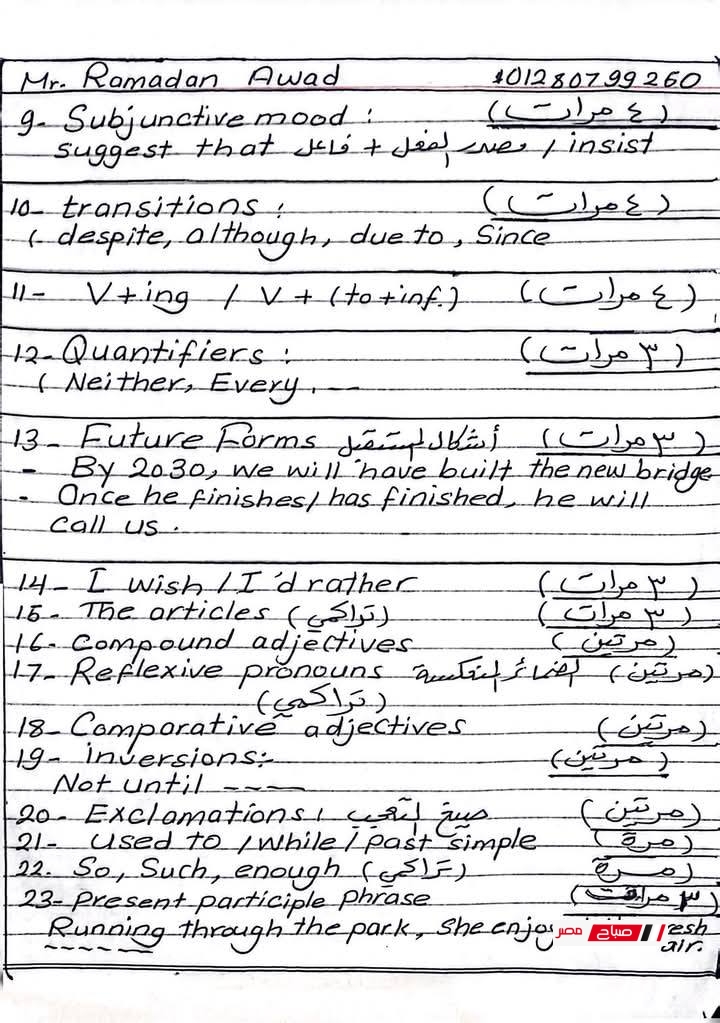 Mr. Ramadan Awad 01280799260
9- Subjunctive mood : (٤ مرات)
suggest that فاعل + مصدر الفعل / insist
10- transitions : (٤ مرات)
( despite, although, due to, Since
11- V+ing / V + (to+inf.) (٤ مرات)
12- Quantifiers : (٣ مرات)
( Neither, Every . --
13- Future Forms أشكال المستقبل (٣ مرات)
- By 2030, we will have built the new bridge
- Once he finishes/has finished, he will
call us.
14- I wish / I'd rather (٣ مرات)
15- The articles (تراكمي) (٣ مرات)
16- Compound adjectives (مرتين)
17- Reflexive pronouns الضمائر المنعكسة (مرتين)
(تراكمي)
18- Comparative adjectives (مرتين)
19- inversions:- (مرتين)
Not until ----
20- Exclamations : صيغ التعجب (مرتين)
21- used to / while / past simple (مرة)
22. So, Such, enough (تراكمي) (مرة)
23- Present participle phrase (٣ مرات)
Running through the park, She enjoy esh
air.
صباح مصر